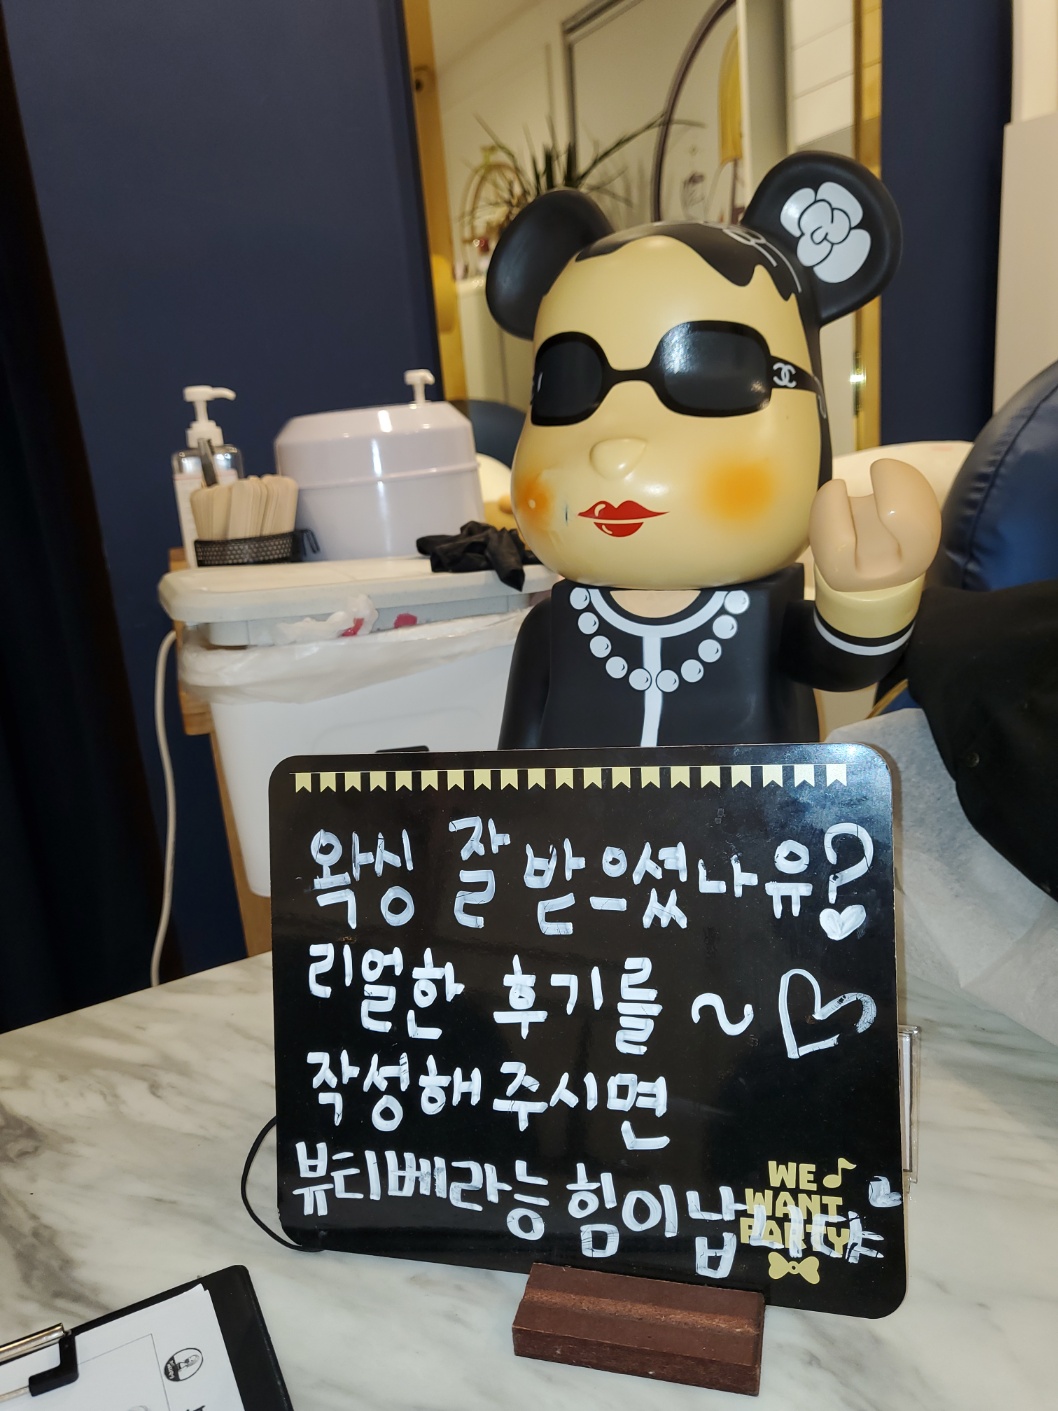 왁싱 잘 받으셨나유?
리얼한 후기를 ~ ♡
작성해 주시면
뷰티베라능 힘이납니다
WE
WANT
PARTY